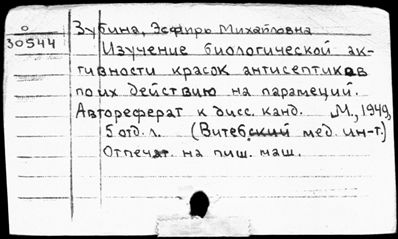 Зубина, Эсфирь Михайловна
0
30544
Изучение биологической ак-
тивности красок антисептиков
по их действию на парамеций.
Автореферат к дисс. канд. М., 1949,
5 отд. л. (Витебский мед. ин-т.)
Отпечат. на пиш. маш.